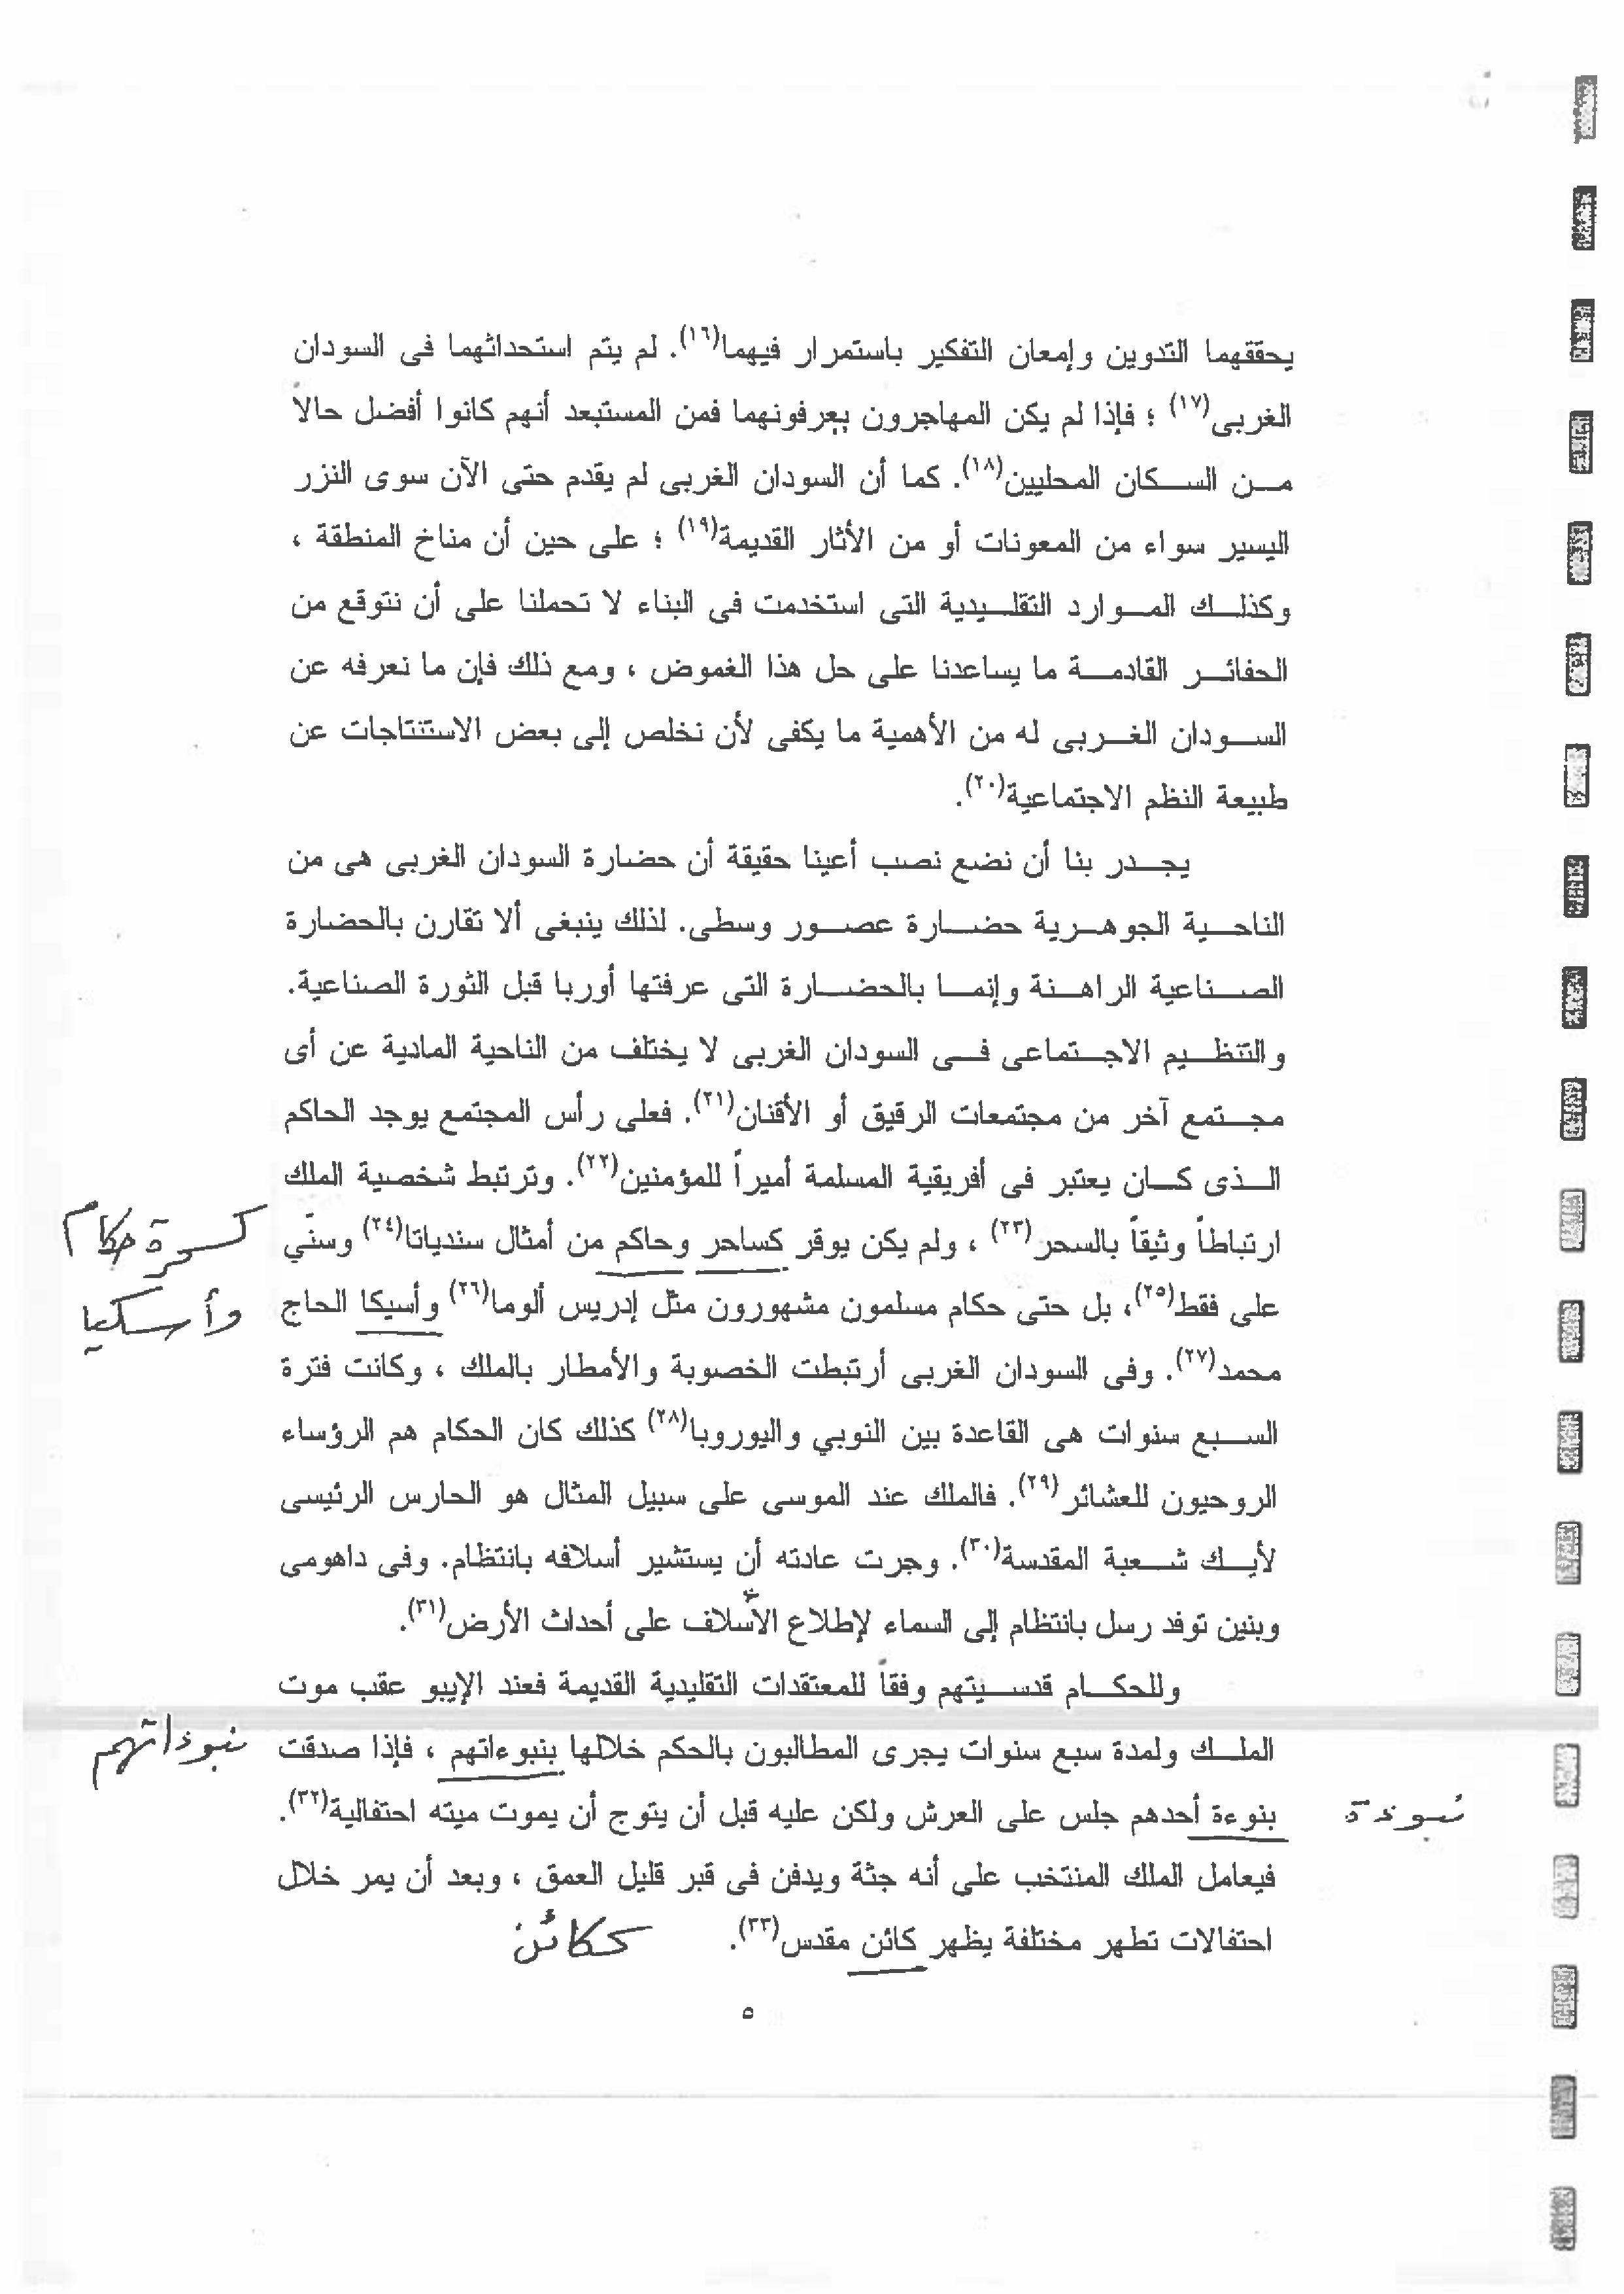 يحققهما التدوين وإمعان التفكير باستمرار فيهما(١٦). لم يتم استحداثهما فى السودان
الغربى(١٧) ؛ فإذا لم يكن المهاجرون يعرفونهما فمن المستبعد أنهم كانوا أفضل حالا
من السكان المحليين(١٨). كما أن السودان الغربى لم يقدم حتى الآن سوى النزر
اليسير سواء من المعونات أو من الأثار القديمة(١٩) ؛ على حين أن مناخ المنطقة ،
وكذلك الموارد التقليدية التى استخدمت فى البناء لا تحملنا على أن نتوقع من
الحفائر القادمة ما يساعدنا على حل هذا الغموض ، ومع ذلك فإن ما نعرفه عن
السودان الغربى له من الأهمية ما يكفى لأن نخلص إلى بعض الاستنتاجات عن
طبيعة النظم الاجتماعية(٢٠).
يجدر بنا أن نضع نصب أعينا حقيقة أن حضارة السودان الغربى هى من
الناحية الجوهرية حضارة عصور وسطى. لذلك ينبغى ألا تقارن بالحضارة
الصناعية الراهنة وإنما بالحضارة التى عرفتها أوربا قبل الثورة الصناعية.
والتنظيم الاجتماعى فى السودان الغربى لا يختلف من الناحية المادية عن أى
مجتمع آخر من مجتمعات الرقيق أو الأقنان(٢١). فعلى رأس المجتمع يوجد الحاكم
الذى كان يعتبر فى أفريقية المسلمة أميراً للمؤمنين(٢٢). وترتبط شخصية الملك
ارتباطاً وثيقاً بالسحر(٢٣) ، ولم يكن يوقر كساحر وحاكم من أمثال سندياتا(٢٤) وسنّي
كسحرة حكام
على فقط(٢٥)، بل حتى حكام مسلمون مشهورون مثل إدريس ألوما(٢٦) وأسيكا الحاج
وأسكيا
محمد(٢٧). وفى السودان الغربى أرتبطت الخصوبة والأمطار بالملك ، وكانت فترة
السبع سنوات هى القاعدة بين النوبي واليوروبا(٢٨) كذلك كان الحكام هم الرؤساء
الروحيون للعشائر(٢٩). فالملك عند الموسى على سبيل المثال هو الحارس الرئيسى
لأيك شعبة المقدسة(٣٠). وجرت عادته أن يستشير أسلافه بانتظام. وفى داهومى
وبنين توفد رسل بانتظام إلى السماء لإطلاع الأسلاف على أحداث الأرض(٣١).
وللحكام قدسيتهم وفقا للمعتقدات التقليدية القديمة فعند الإيبو عقب موت
الملك ولمدة سبع سنوات يجرى المطالبون بالحكم خلالها بنبوءاتهم ، فإذا صدقت
نبوءاتهم
بنوءة أحدهم جلس على العرش ولكن عليه قبل أن يتوج أن يموت ميته احتفالية(٣٢).
نبوءة
فيعامل الملك المنتخب على أنه جثة ويدفن فى قبر قليل العمق ، وبعد أن يمر خلال
احتفالات تطهر مختلفة يظهر كائن مقدس(٣٣).
ككائن
٥